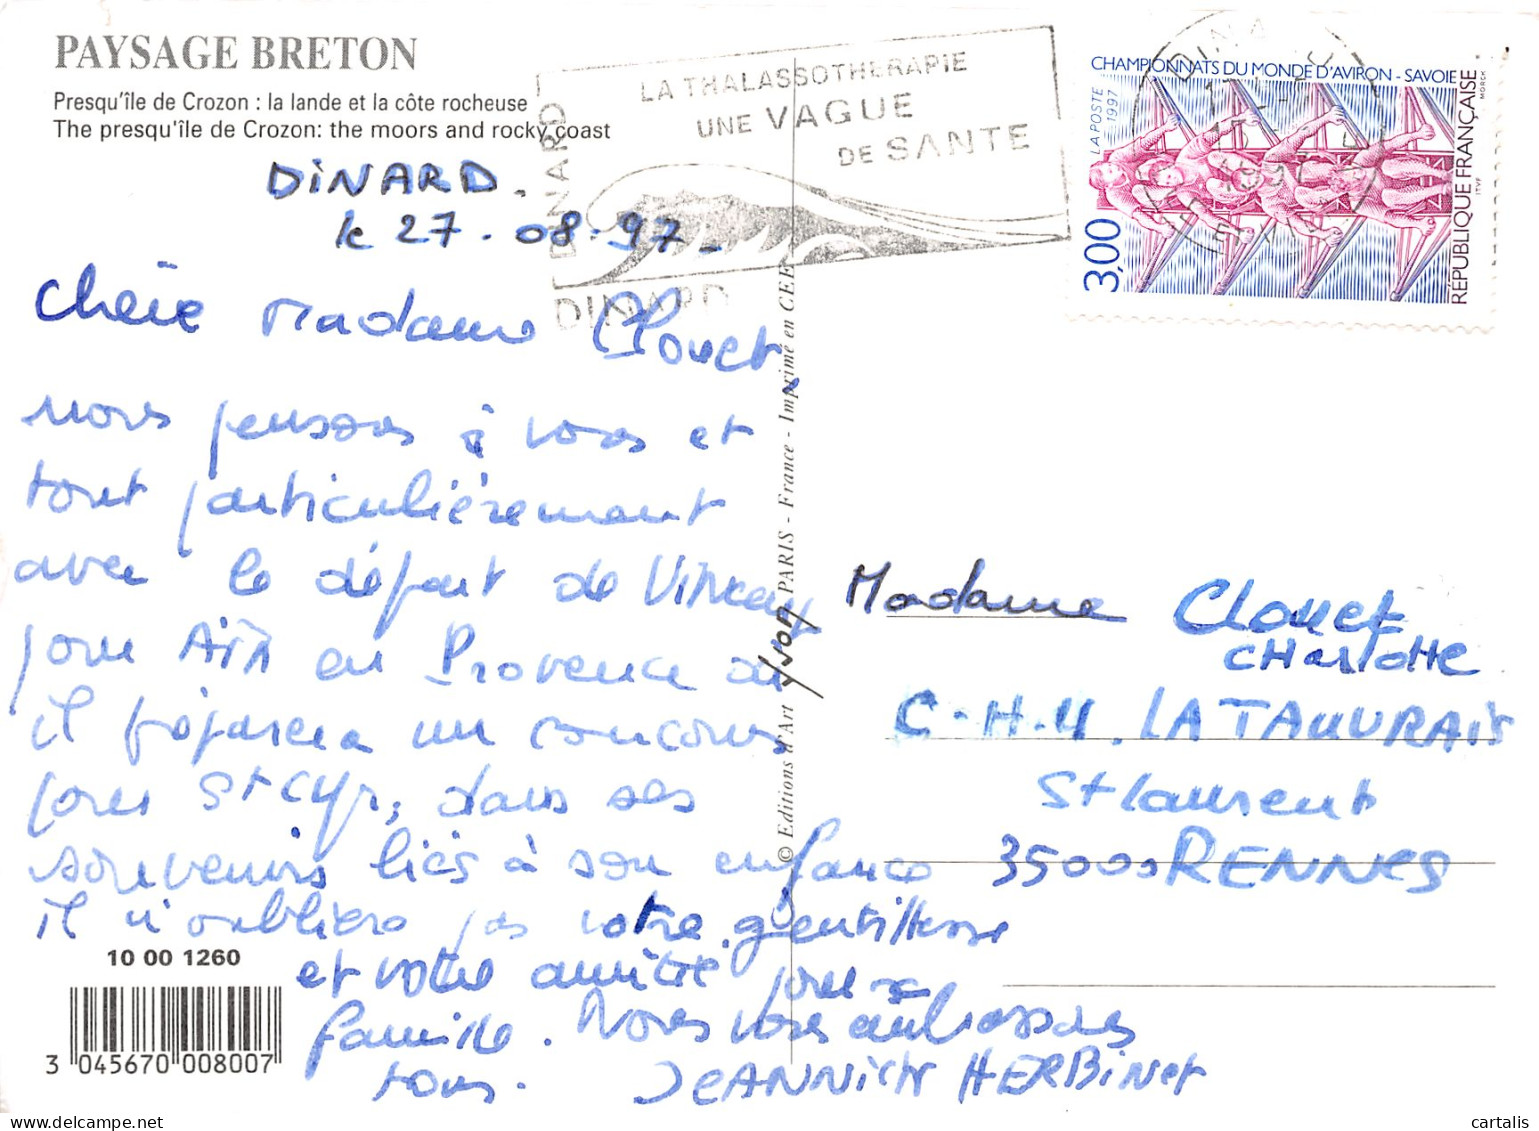 PAYSAGE BRETON
Presqu'île de Crozon : la lande et la côte rocheuse
The presqu'île de Crozon: the moors and rocky coast
DINARD.
le 27.08.97
Chère Madame Clouet,
nous pensons à vous et
tout particulièrement
avec le départ de Vincent
pour Aix en Provence où
il préparera un concours
pour St Cyr, dans ses
souvenirs liés à son enfance
il n'oubliera pas votre gentillesse
et votre amitié pour sa
famille. Nous vous embrassons
tous. JEANNICK HERBINET
10 00 1260
3 045670 008007
© Editions d'Art Yvon PARIS - France - Imprimé en CEE
DINARD
LA THALASSOTHERAPIE
UNE VAGUE
DE SANTE
DINARD
CHAMPIONNATS DU MONDE D'AVIRON - SAVOIE
LA POSTE
1997
3,00
RÉPUBLIQUE FRANÇAISE
ITVF
Madame Clouet
CHarlotte
C.H.U. LA TAUVRAIS
St Laurent
35000 RENNES
cartalis